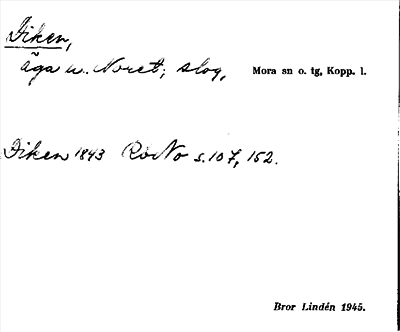 Diken,
äga u. Noret; slog, Mora sn o. tg, Kopp. l.
Diken 1843 RoNo s. 107, 152.
Bror Lindén 1945.